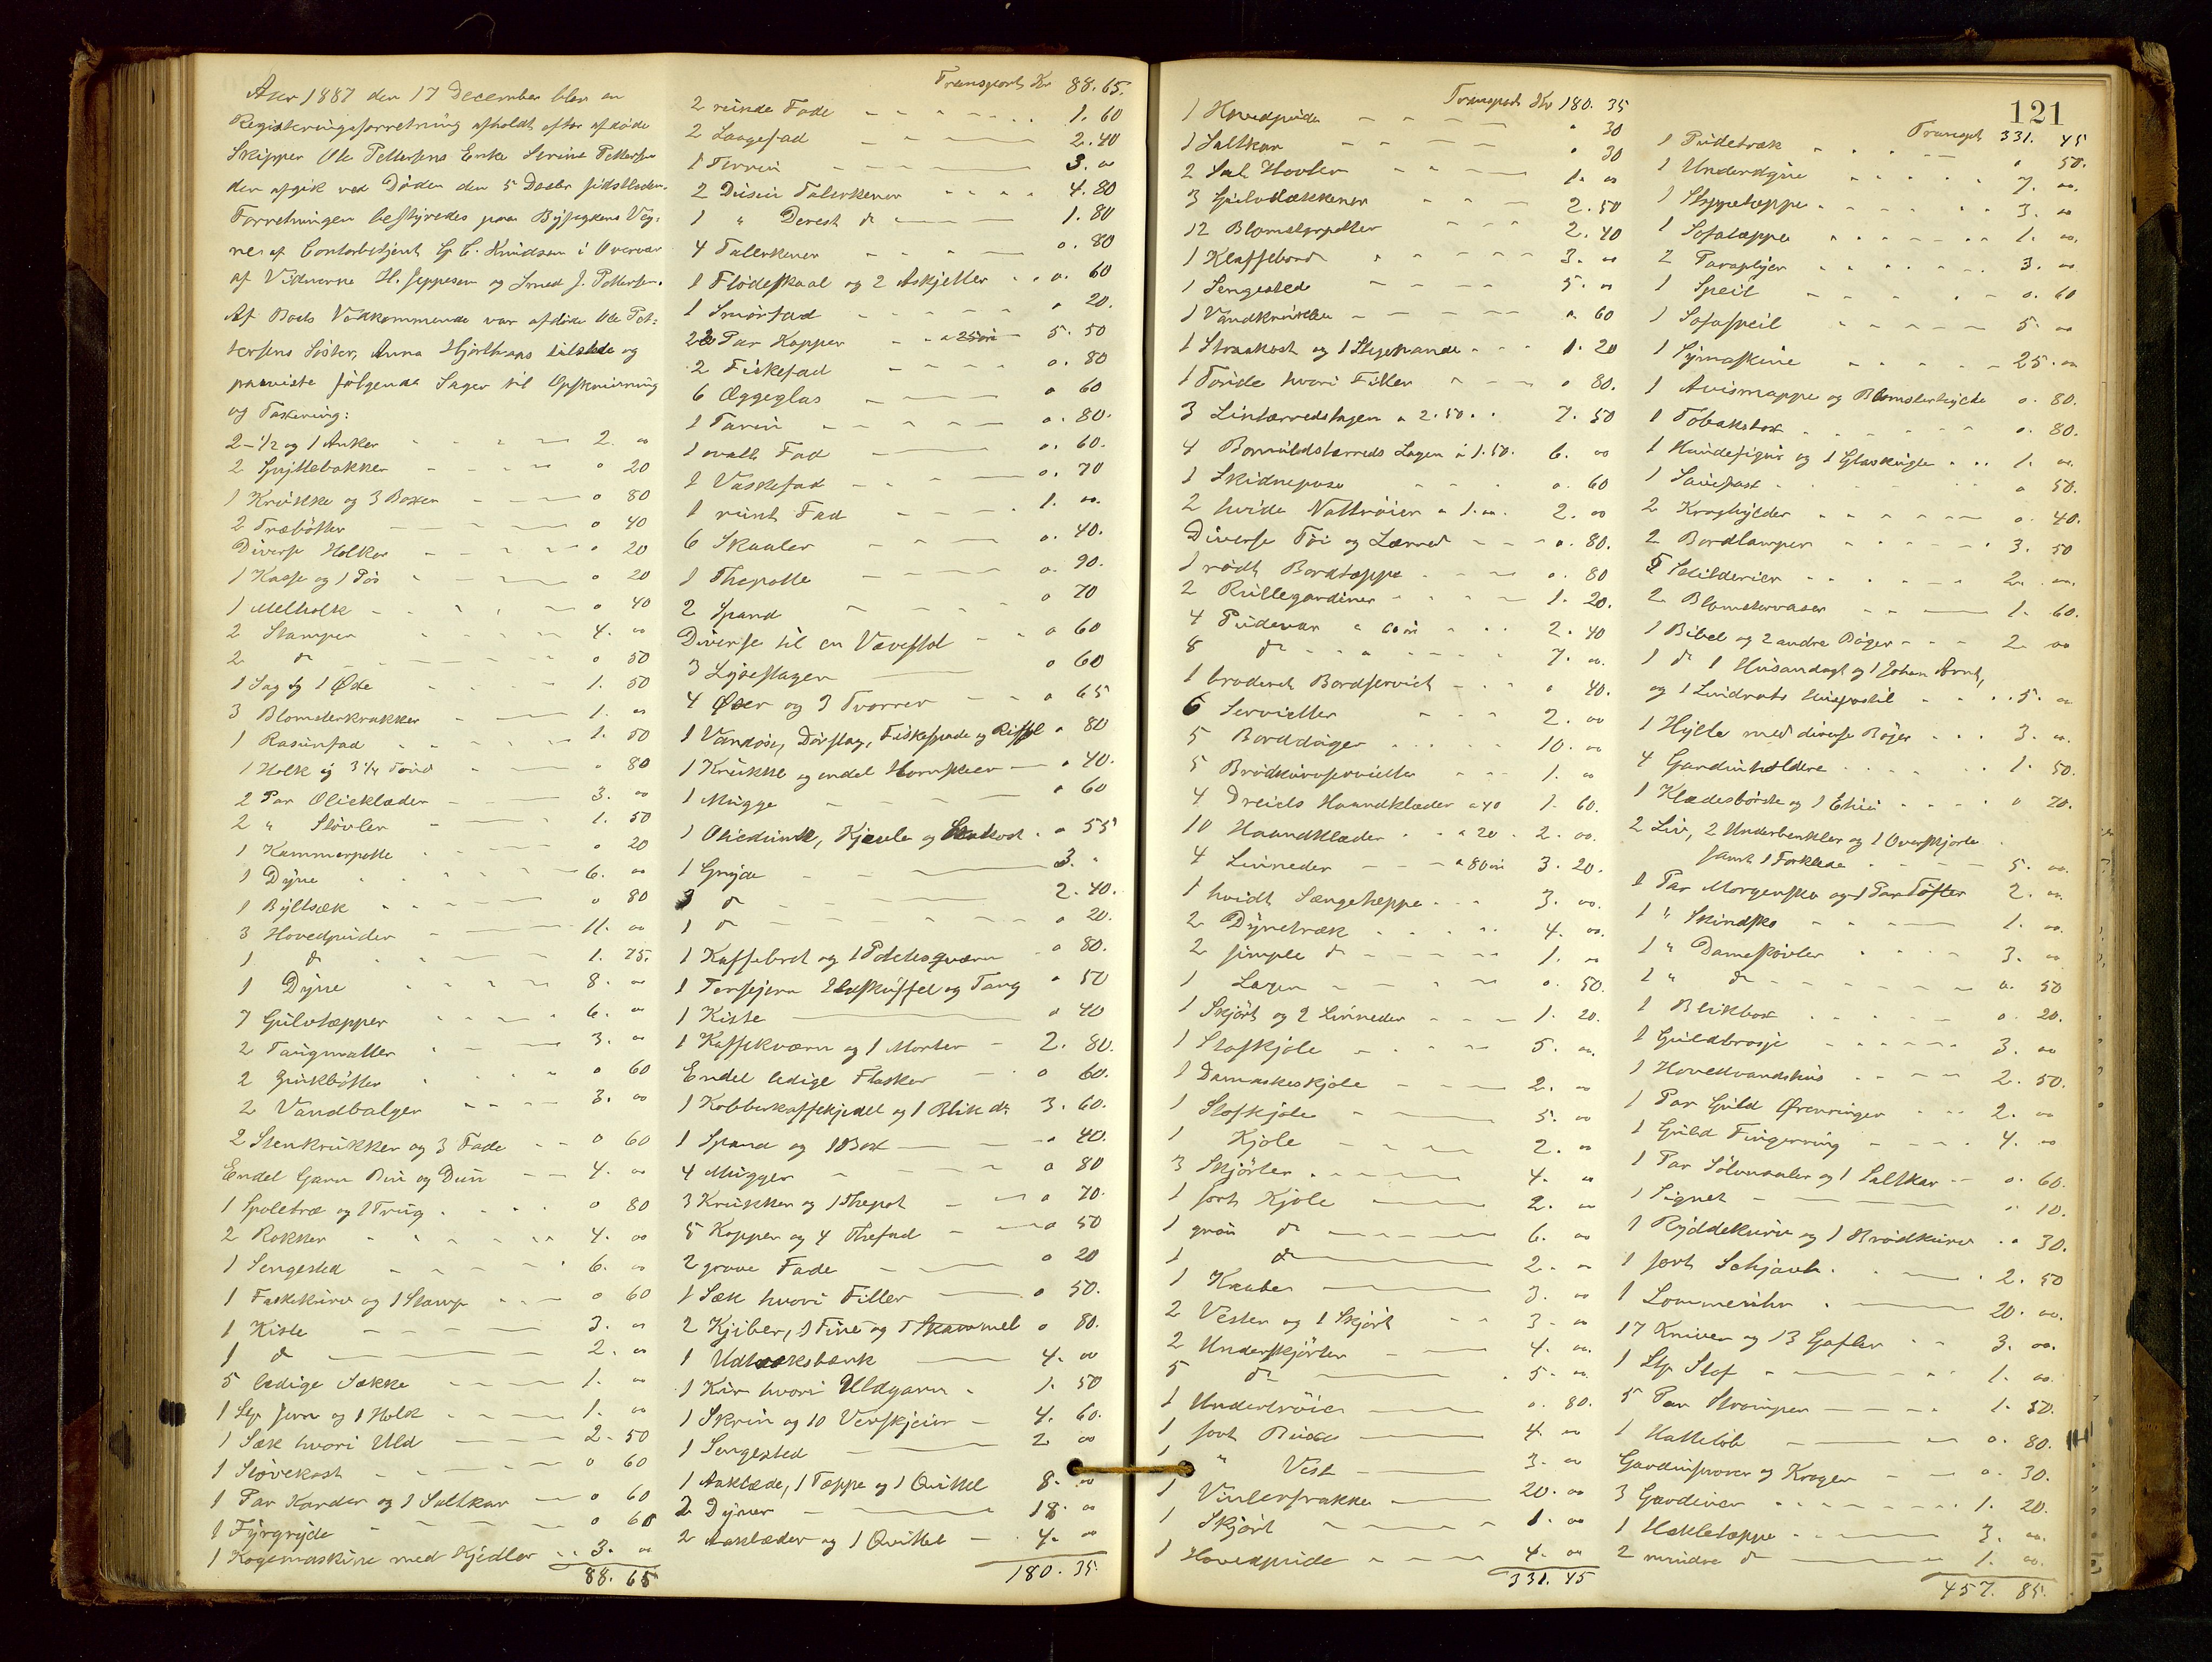 Aar 1887 den 17 December blev en
Registreringsforretning afholdt efter afdøde
Skipper Ole Pettersens Enke Serine Pettersen
der afgik ved Døden den 5 Decbr sidstleden.
Forretningen bestyredes paa Byfogdens Veg-
ne af Contorbetjent G. C. Knudsen i Overvær
af Vidnerne H. Jeppesen og Smed J. Pettersen.
Af Boets Vedkommende var afdøde Ole Pet-
tersens Søster, Anna Hjorthaas tilstede og
paaviste følgende Sager til Opskrivning
og Taxering:
2-1/2 og 1 Anker 2. oo
2 Spyttebakker o 20
1 Krukke og 3 Boxer o 80
2 Træbøtter o 40
Diverse Holker o 20
1 Kasse og 1 Pøs o 20
1 Melholk o 40
2 Stamper 4. oo
2 do o 50
1 Sag og 1 Øxe 1. 50
3 Blomsterkrukker 1. oo
1 Rasürfad 1. 50
1 Holk og 3 1/4 Tønd o 80
2 Par Olieklæder 3. oo
2 " Støvler 1. 50
1 Kammerpotte o 20
1 Dyne 6. oo
1 Byltsæk o 80
3 Hovedpuder 11. oo
1 do 1. 75.
1 Dyne 8. oo
7 Gulvtæpper 6. oo
2 Taugmatter 3. oo
2 Spikbøtter o 60
2 Vandbalger 3. oo
2 Stenkrukker og 3 Fade o 60
Endel Garn Bin og Dun 4. oo
1 Spoletræ og 1 Trug o 80
2 Rokker 4. oo
1 Sengested 6. oo
1 Faskekurv og 1 Stamp o 60
1 Kiste 3. oo
1 do 2. oo
5 ledige Sække 1. oo
1 Stp Jern og 1 Holk 1. oo
1 Sæk hvori Uld 2. 50
1 Støvekost o 60
1 Par Karder og 1 Saltkar o 60
1 Fyrgryde o 60
1 Kogemaskine med Kjedler 3. oo
88. 65
Transport Kr 88. 65.
2 runde Fade 1. 60
2 Laagefad 2. 40
1 Terrin 3. oo
2 Dusin Talerkener 4. 80
1 " Desert do 1. 80
4 Talerkener o. 80
1 Flødeskaal og 2 Askjetter o. 60
1 Smørfad o 20.
22 Par Kopper a 25 øre 5. 50
2 Fiskefad o. 80
6 Æggeglas o 60
1 Tarin o. 80.
1 ovalt Fad o. 60.
1 Vaskefad o. 70
1 rundt Fad 1. oo.
6 Skaaler o. 40.
1 Thepotte o. 90.
2 Spand o 70
Diverse til en Vævestol o 60
3 Lysestager o 60
4 Øser og 3 Tvarrer o 65
1 Vandøse, Dørslag, Fiskespade og Riffel o 80
1 Krukke og endel Hornskeer o 40.
1 Mugge o 60
1 Oliedunk, Kjerele og Stenkost o 55
1 Gryde 3. "
3 do 2. 40.
1 do o 20.
1 Kaffebret og 1 Potetesqværn o 80.
1 Torfejern Ildskuffel og Tang o 50
1 Kiste o 40
1 Kaffekværn og 1 Morter 2. 80.
Endel ledige Flasker o 60.
1 Kobberkaffekjedel og 1 Blik do 3. 60.
1 Spand og 1 Box o 40.
4 Mugger o 80
3 Krukker og 1 Thepot o 70.
5 Kopper og 4 Thefad o 50
2 grove Fade o 20
1 Sæk hvori Filler o 50.
2 Kjiber, 1 Tine og 1 Skammel o 80.
1 Udtræksbænk 4. oo
1 Kar hvori Uldgarn 1. 50
1 Skrin og 10 Vevskjeier 4. 60.
1 Sengested 2 oo
1 Aaklæde, 1 Tæppe og 1 Qvittel 8. oo
2 Dyner 18. oo
2 Aaklæder og 1 Qvittel 4. oo
180. 35.
121
Transport Kr 180. 35
1 Hovedpude o 30
1 Saltkar o 30
2 Sæt Hovler 1. oo
3 Gulvdækkener 2. 50
12 Blomsterpotter 2. 40
1 Klaffebord 3. oo
1 Sengested 5. oo
1 Vandkrukke o. 60
1 Straakost og 1 Stegepande 1. 20
1 Tønde hvori Filler o 80.
3 Lintærredslagen a 2. 50. 7. 50
4 Bomuldstærreds Lagen a 1. 50. 6. oo
1 Skidnepose o. 60
2 hvide Nattrøier a 1. oo. 2. oo
Diverse Tøi og Lærred o. 80.
1 rødt Bordtæppe o. 80
2 Rullegardiner 1. 20.
4 Pudevar a 60 øre 2. 40
8 do 7. oo.
1 broderet Bordserviet o 40.
6 Servietter 2. oo
5 Bordduger 10. oo
5 Brødkurvservietter 1. oo
4 Dreiels Haandklæder a 40 1. 60.
10 Haandklæder a 20. 2. oo.
4 Linneder a 80 øre 3. 20.
1 hvidt Sængetæppe 3. oo.
2 Dynetræk 4. oo.
2 simple do 1. oo
1 Lagen o. 50.
1 Skjørt og 2 Linneder 1. 20.
1 Stofkjole 5. oo.
1 Damaskeskjole 2. oo
1 Stofkjole 5. oo
1 Kjole 2. oo
3 Skjørter 4. oo
1 sort Kjole 2. oo
1 grøn do 6. oo
1 do 2. oo
1 Kaabe 3. oo
2 Vester og 1 Skjört 3. oo
2 Underskjörter 4. oo.
5 do 5. oo
1 Undertrøier o. 80.
1 sort Buxe 4. oo
1 " Vest 3. oo
1 Vinterfrakke 20. oo
1 Skjört 1. oo
1 Hovedpude 4. oo
331. 45
Transpt 331. 45
1 Pudetræk o 50.
1 Underdyne 7. oo.
1 Stoppetæppe 3. oo
1 Sofatæppe 1. oo.
2 Paraplyer 3. oo
1 Speil o. 60
1 Sofaspeil 5. oo
1 Symaskine 25. oo
1 Avismappe og Blomsterhylde o. 80.
1 Tobaksbox o. 80.
1 Hundefigur og 1 Glaskugle 1. oo.
1 o 50.
2 Kraghylder o. 40.
2 Bordlamper 3. 50
5 Skilderier 2. oo.
2 Blomstervaser 1. 60.
1 Bibel og 2 andre Bøger 2. oo
1 do 1 Husandagt og 1 Johan Arnt,
og 1 Lindrots Huspostil 5. oo
1 Hylle med diverse Bøger 3. oo.
4 Gardinholdere 1. 50.
1 Klædesbørste og 1 Etui o 70.
2 Liv, 2 Underbenklær og 1 Overskjorte
samt 1 Forklæde 5. oo.
1 Par Morgensko og 1 Par Tøfler 2. oo.
1 " Skindsko 1. oo.
1 " Damestøvler 3. oo
1 " do o. 50
1 Blikbox o. 20.
1 Guldbrosje 3. oo
1 Hovedvandshus 2. 50.
1 Par Guld Ørenringer 2. oo
1 Guld Fingerring 4. oo
1 Par Sølvnaaler og 1 Saltkar o. 60.
1 Signet o. 10.
1 Ryddekurv og 1 Brødkurv o 30.
1 sort Schjavl 2. 50
1 Lommeuhr 20. oo.
17 Kniver og 13 Gafler 3. oo.
1 Stp Stof 1. oo.
5 Par Strømper 1. 50.
1 Hatteløb o. 80.
Gardinsnorer og Kroger o. 30.
3 Gardiner 1. 20.
1 Hækletæppe 3. oo.
2 mindre do 1. oo.
457. 85.